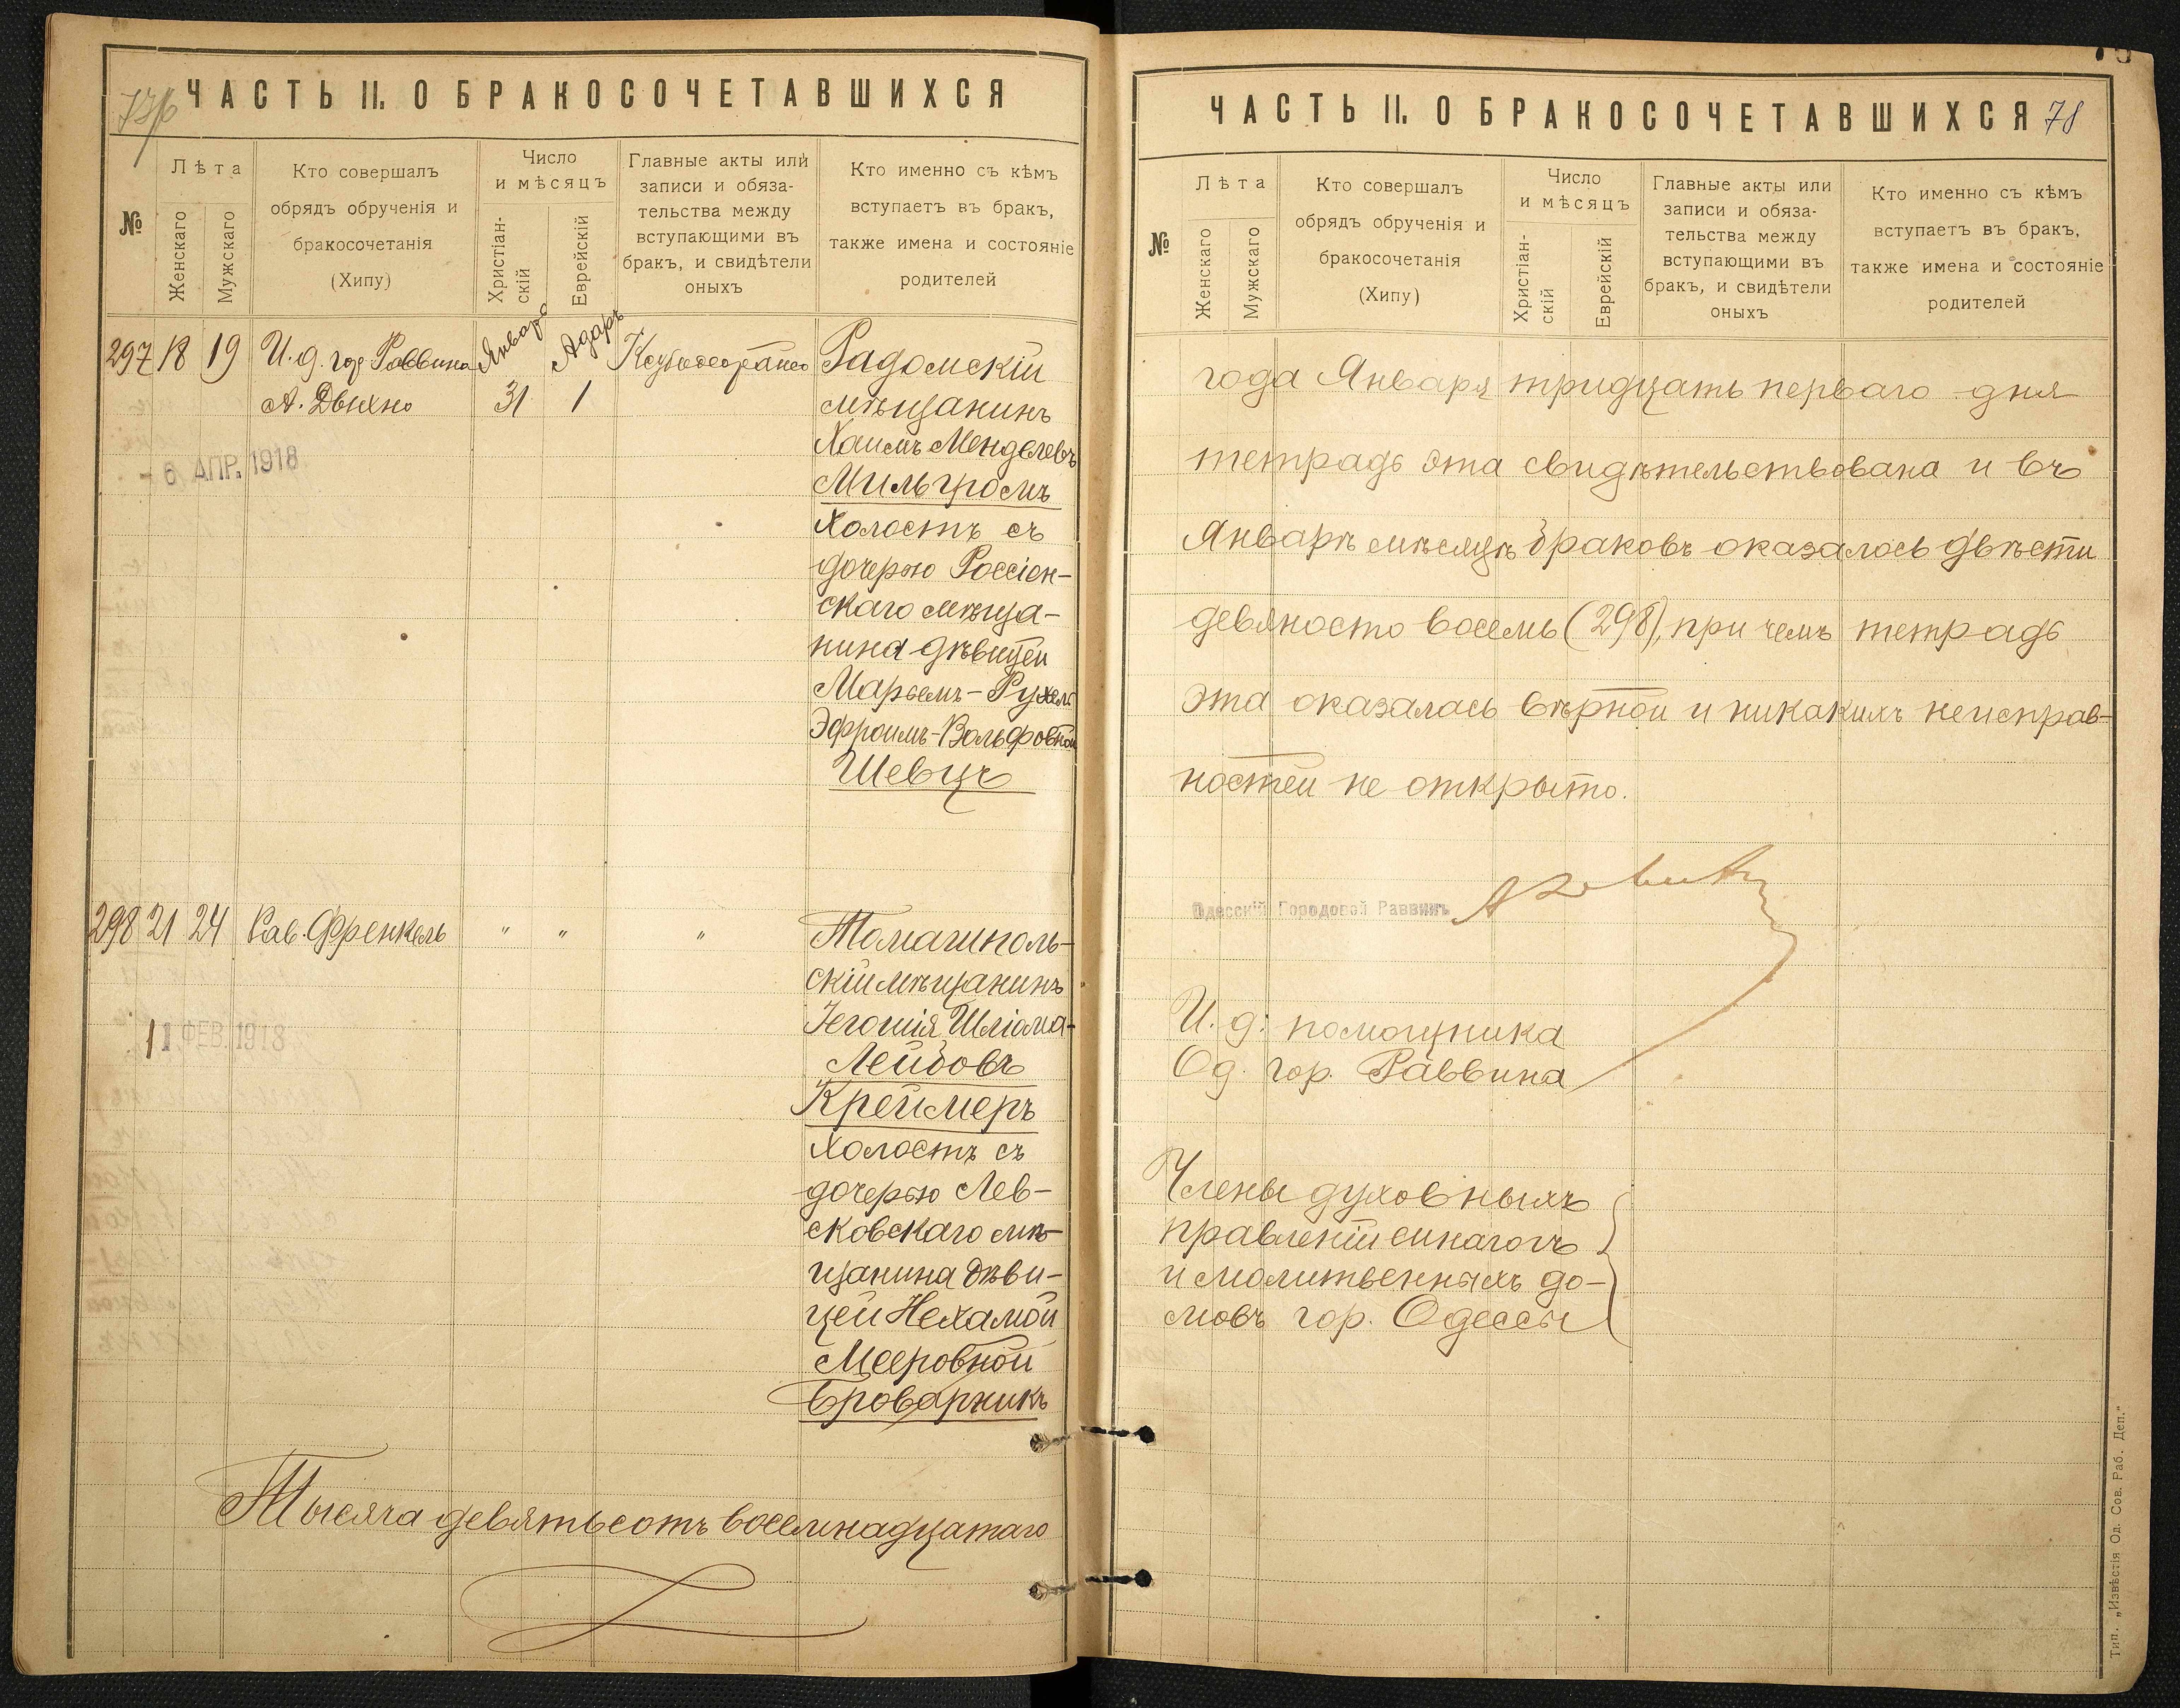 ЧАСТЬ II. О БРАКОСОЧЕТАВШИХСЯ
№
Лѣта
Женскаго
Мужскаго
Кто совершалъ
обрядъ обрученія и
бракосочетанія
(Хипу)
Число
и мѣсяцъ
Христіан-
скій
Еврейскій
Главные акты или
записи и обяза-
тельства между
вступающими въ
бракъ, и свидѣтели
оныхъ
Кто именно съ кѣмъ
вступаетъ въ бракъ,
также имена и состояніе
родителей
297 18 19 И. д. гор. Раввина Января Адаръ Радомскій
А. Двихно 31 1 мѣщанинъ
Хаимъ Менделевъ
- 6 АПР. 1918
Мильгромъ
холостъ съ
дочерью Россіен-
скаго мѣща-
нина дѣвицей
Марьемъ-Рухель
Эфроимъ-Вольфовной
Шевцъ
298 21 24 Рав. Френкель " " " Томашполь-
скій мѣщанинъ
Іегошія Шліома-
11 ФЕВ. 1918
Лейбовъ
Креймеръ
холостъ съ
дочерью Лев-
сковскаго мѣ-
щанина дѣви-
цей Нехамой
Мееровной
Броварникъ
Тысяча девятьсотъ восемнадцатаго
ЧАСТЬ II. О БРАКОСОЧЕТАВШИХСЯ 78
№
Лѣта
Женскаго
Мужскаго
Кто совершалъ
обрядъ обрученія и
бракосочетанія
(Хипу)
Число
и мѣсяцъ
Христіан-
скій
Еврейскій
Главные акты или
записи и обяза-
тельства между
вступающими въ
бракъ, и свидѣтели
оныхъ
Кто именно съ кѣмъ
вступаетъ въ бракъ,
также имена и состояніе
родителей
года Января тридцать перваго дня
тетрадь эта свидѣтельствована и въ
Январѣ мѣсяцѣ браковъ оказалось двѣсти
девяносто восемь (298), при чемъ тетрадь
эта оказалась вѣрной и никакихъ неисправ-
ностей не открыто.
Одесскій Городовой Раввинъ
И. д. помощника
Од. гор. Раввина
Члены духовныхъ
правленій синагогъ
и молитвенныхъ до-
мовъ гор. Одессы
Тип. „Извѣстія Од. Сов. Раб. Деп."